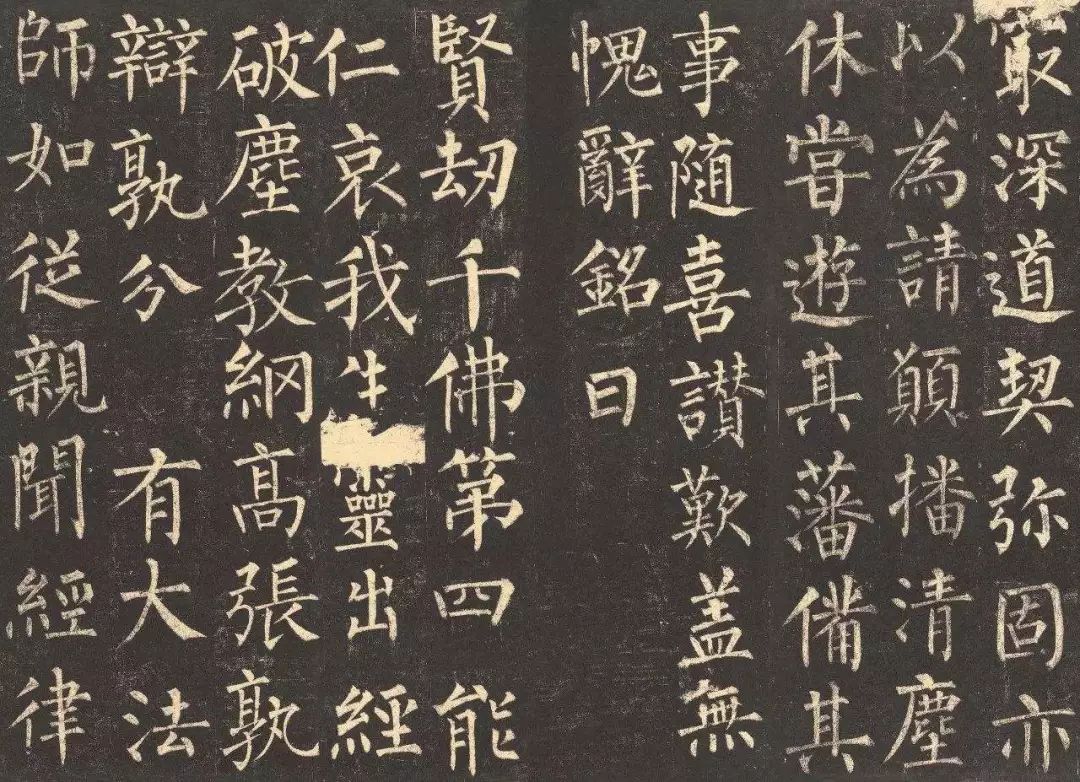 最深道契弥固亦
以為請願播清塵
休甞遊其藩備其
事隨喜讃歎盖無
愧辭銘曰
賢劫千佛第四能
仁哀我生靈出經
破塵教綱高張孰
辯孰分 有大法
師如從親聞經律